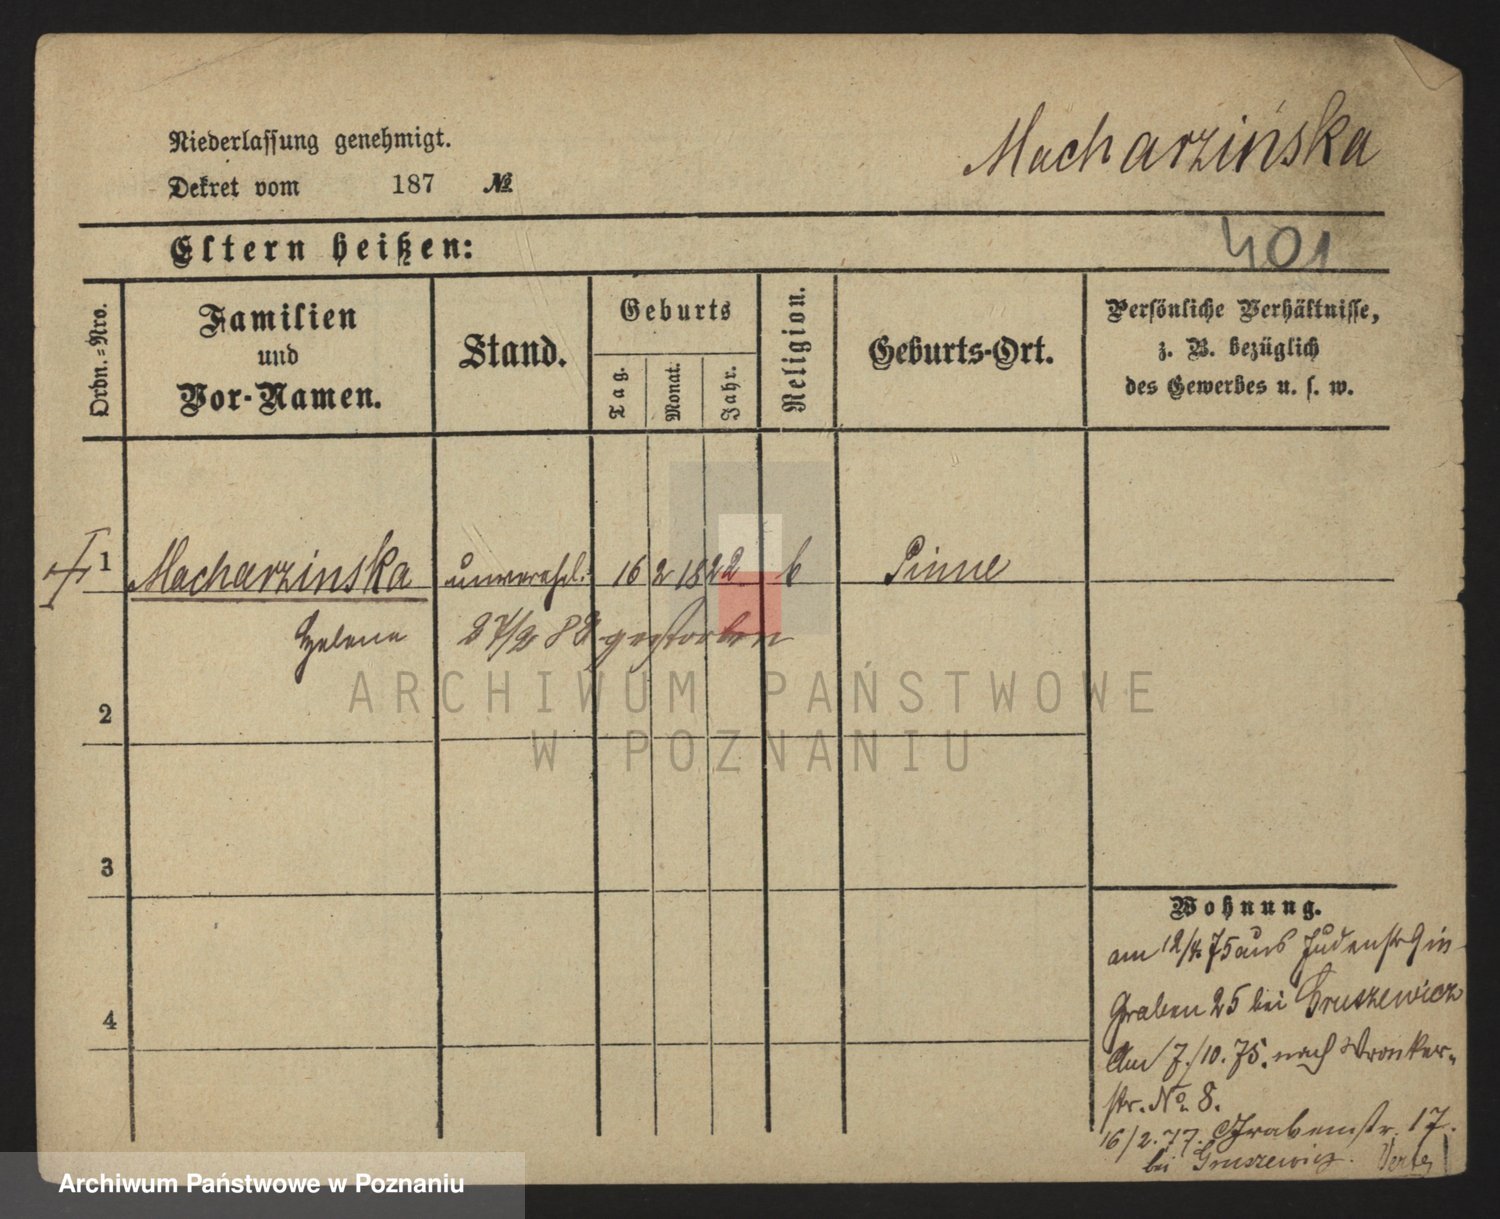 Macharzińska
Niederlassung genehmigt.
Dekret vom 187 №
Eltern heißen:
401
Ordn.=Nro.
Familien
und
Vor-Namen.
Stand.
Geburts
Tag.
Monat.
Jahr.
Religion.
Geburts-Ort.
Persönliche Verhältnisse,
z. B. bezüglich
des Gewerbes u. s. w.
1 Macharzinska unverehel. 16 2 1822 k Pinne
Helene 27/2 82 gestorben
2
3
4
Wohnung.
am 12/4 75 aus Judenstr 9 in
Graben 25 bei Gruszewicz
Am 7./10. 75. nach Wronker-
str. No 8.
16/2. 77. Grabenstr. 17.
bei Gruszewicz.
ARCHIWUM PAŃSTWOWE
W POZNANIU
Archiwum Państwowe w Poznaniu